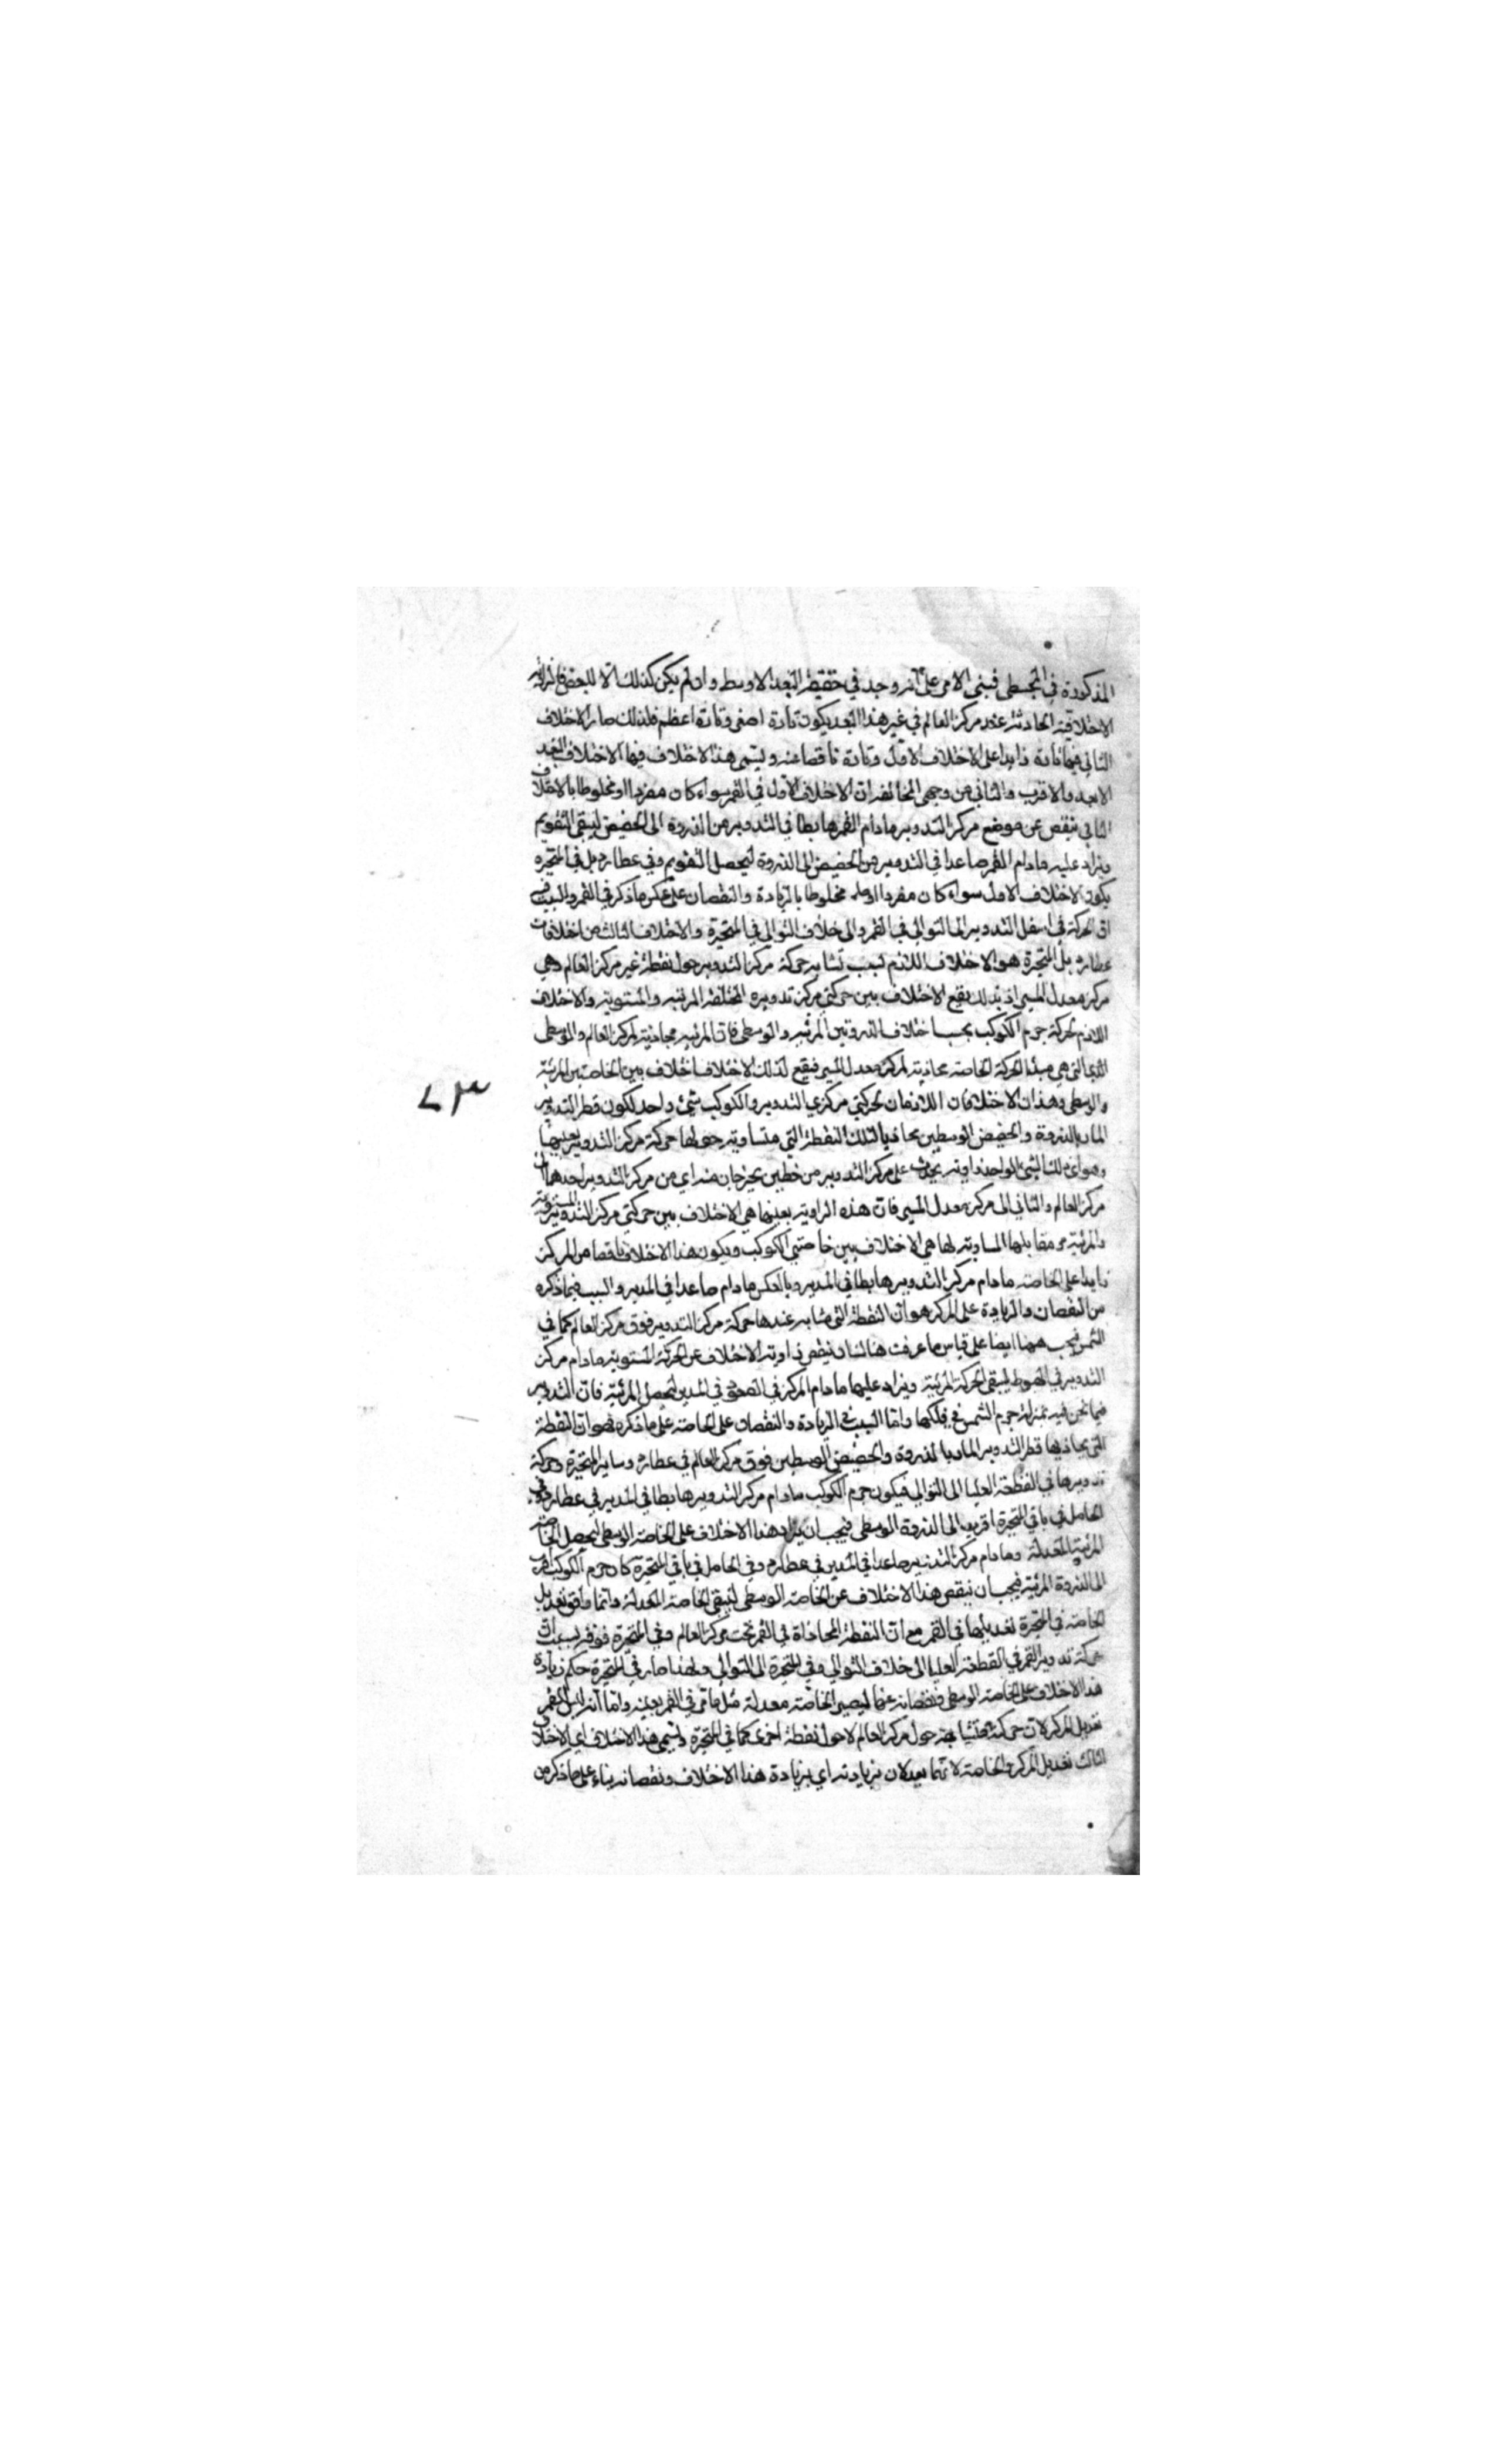 المذكورة في المجسطي فبنى الامر على انه وجد في حقيقة البعد الاوسط وان لم يكن كذلك الا للبعض فالزاوية
الاختلافية الحادثة عند مركز العالم في غير هذا البعد يكون تارة اصغر وتارة اعظم فلذلك صار الاختلاف
الثاني فيها تارة زايدا على الاختلاف الاول وتارة ناقصا عنه ويسمى هذا الاختلاف فيها الاختلاف البعد
الابعد والاقرب والثاني من وجهي المخالفة ان الاختلاف الاول في القمر سواء كان مفردا او مخلوطا بالاختلاف
الثاني ينقص عن موضع مركز التدوير ما دام القمر هابطا في التدوير من الذروة الى الحضيض ليبقى التقويم
ويزاد عليه ما دام القمر صاعدا في التدوير من الحضيض الى الذروة ليحصل التقويم وفي عطارد بل في المتحيرة
يكون الاختلاف الاول سواء كان مفردا او مخلوطا بالزيادة والنقصان على عكس ما ذكر في القمر والسبب فيه
ان الحركة في اسفل التدوير الى التوالي في القمر والى خلاف التوالي في المتحيرة والاختلاف الثالث من اختلافات
عطارد بل المتحيرة هو الاختلاف اللازم لسبب تشابه حركة مركز التدوير حول نقطة غير مركز العالم وهي
مركز معدل المسير اذ بذلك يقع الاختلاف بين حركتي مركز تدويره المختلفة المرئية والمستوية والاختلاف
اللازم لحركة جرم الكوكب بحسب اختلاف الذروتين المرئية والوسطى فان المرئية محاذية لمركز العالم والوسطى
التي هي مبدا الحركة الخاصة محاذية لمركز معدل المسير فيقع لذلك الاختلاف اختلاف بين الخاصتين المرئية
والوسطى وهذان الاختلافان اللازمان لحركتي مركزي التدوير والكوكب شئ واحد لكون قطر التدوير
المار بالذروة والحضيض الوسطيين محاذيا لتلك النقطة التي متساوية حولها حركة مركز التدوير بعينها
وهو اي ذلك الشئ الواحد زاوية يحدث على مركز التدوير من خطين يخرجان منه اي من مركز التدوير احدهما الى
مركز العالم والثاني الى مركز معدل المسير فان هذه الزاوية بعينها هي الاختلاف بين حركتي مركز التدوير المستوية
والمرئية ومقابلها المساوية لها هي الاختلاف بين خاصتي الكوكب ويكون هذا الاختلاف ناقصا من المركز
زايدا على الخاصة ما دام مركز التدوير هابطا في المدير وبالعكس ما دام صاعدا في المدير والسبب فيما ذكره
من النقصان والزيادة على المركز هو ان النقطة التي تشابه عندها حركة مركز التدوير فوق مركز العالم كما في
الشمس فيجب ههنا ايضا على قياس ما عرفت هناك ان ينقص زاوية الاختلاف عن الحركة المستوية ما دام مركز
التدوير في الهبوط ليبقى الحركة المرئية ويزاد عليها ما دام المركز في الصعود في المدير ليحصل المرئية فان التدوير
فيما نحن فيه بمنزلة جرم الشمس في فلكها واما السبب في الزيادة والنقصان على الخاصة على ما ذكره فهو ان النقطة
التي يحاذيها قطر التدوير المار بالذروة والحضيض الوسطيين فوق مركز العالم في عطارد وساير المتحيرة وحركة
تدويرها في القطعة العليا الى التوالي فيكون جرم الكوكب ما دام مركز التدوير هابطا في المدير في عطارد وفي
الحامل في باقي المتحيرة اقرب الى الذروة الوسطى فيجب ان يزاد هذا الاختلاف على الخاصة الوسطى ليحصل الخاصة
المرئية المعدلة وما دام مركز التدوير صاعدا في المدير في عطارد وفي الحامل في باقي المتحيرة كان جرم الكوكب اقرب
الى الذروة المرئية فيجب ان ينقص هذا الاختلاف عن الخاصة الوسطى ليبقى الخاصة المعدلة وانما وافق تعديل
الخاصة في المتحيرة تعديلها في القمر مع ان النقطة المحاذاة في القمر تحت مركز العالم وفي المتحيرة فوقه بسبب ان
حركة تدوير القمر في القطعة العليا الى خلاف التوالي وفي المتحيرة الى التوالي ولهذا صار في المتحيرة حكم زيادة
هذا الاختلاف على الخاصة الوسطى ونقصانه عنها ليصير الخاصة معدلة مثل ما مر في القمر بعينه واما انه ليس للقمر
تعديل المركز لان حركته متشابهة حول مركز العالم لا حول نقطة اخرى كما في المتحيرة ويسمى هذا الاختلاف اي الاختلاف
الثالث تعديل المركز والخاصة لانهما يعدلان بزيادته اي بزيادة هذا الاختلاف ونقصانه بناء على ما ذكر من
٧٣